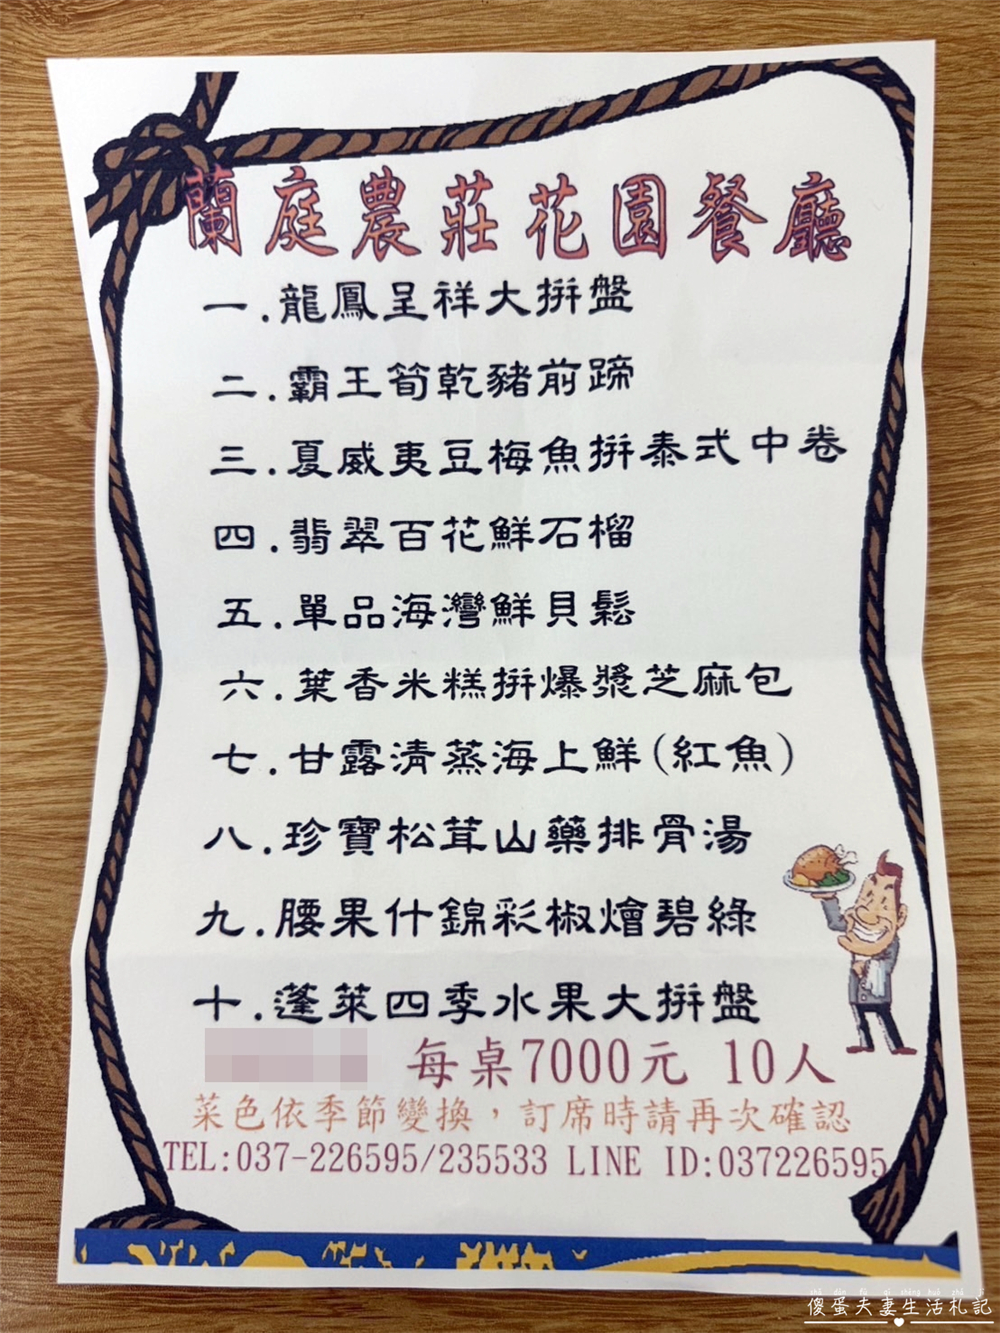 蘭庭農莊花園餐廳
一.龍鳳呈祥大拼盤
二.霸王筍乾豬前蹄
三.夏威夷豆梅魚拼泰式中卷
四.翡翠百花鮮石榴
五.單品海灣鮮貝鬆
六.葉香米糕拼爆漿芝麻包
七.甘露清蒸海上鮮(紅魚)
八.珍寶松茸山藥排骨湯
九.腰果什錦彩椒燴碧綠
十.蓬萊四季水果大拼盤
每桌7000元 10人
菜色依季節變換，訂席時請再次確認
TEL:037-226595/235533 LINE ID:037226595
傻蛋夫妻生活札記